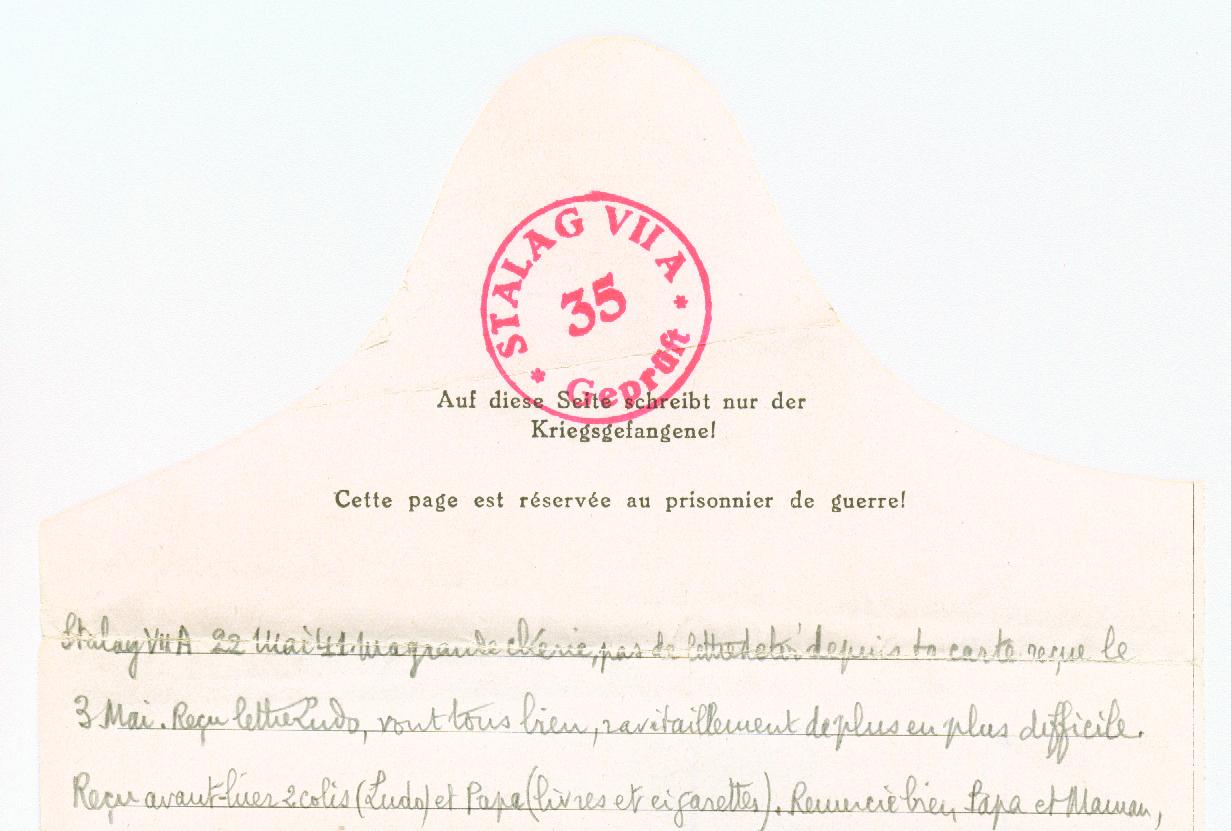 STALAG VII A
35
* Geprüft *
Auf diese Seite schreibt nur der
Kriegsgefangene!
Cette page est réservée au prisonnier de guerre!
Stalag VII A 22 Mai 41. Ma grande chérie, pas de lettre de toi depuis ta carte reçue le
3 Mai. Reçu lettre Ludo, vont tous bien, ravitaillement de plus en plus difficile.
Reçu avant-hier 2 colis (Ludo) et Papa (livres et cigarettes). Remercie bien Papa et Maman,